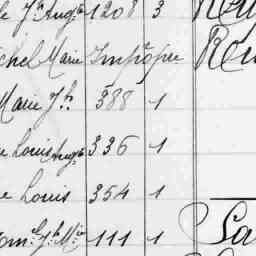 le Jh Augte 1208 3
chel Marie Imprope
Marie Jh 388 1
e Louis Augte 336 1
e Louis 354 1
om. Jh Mie 111 1